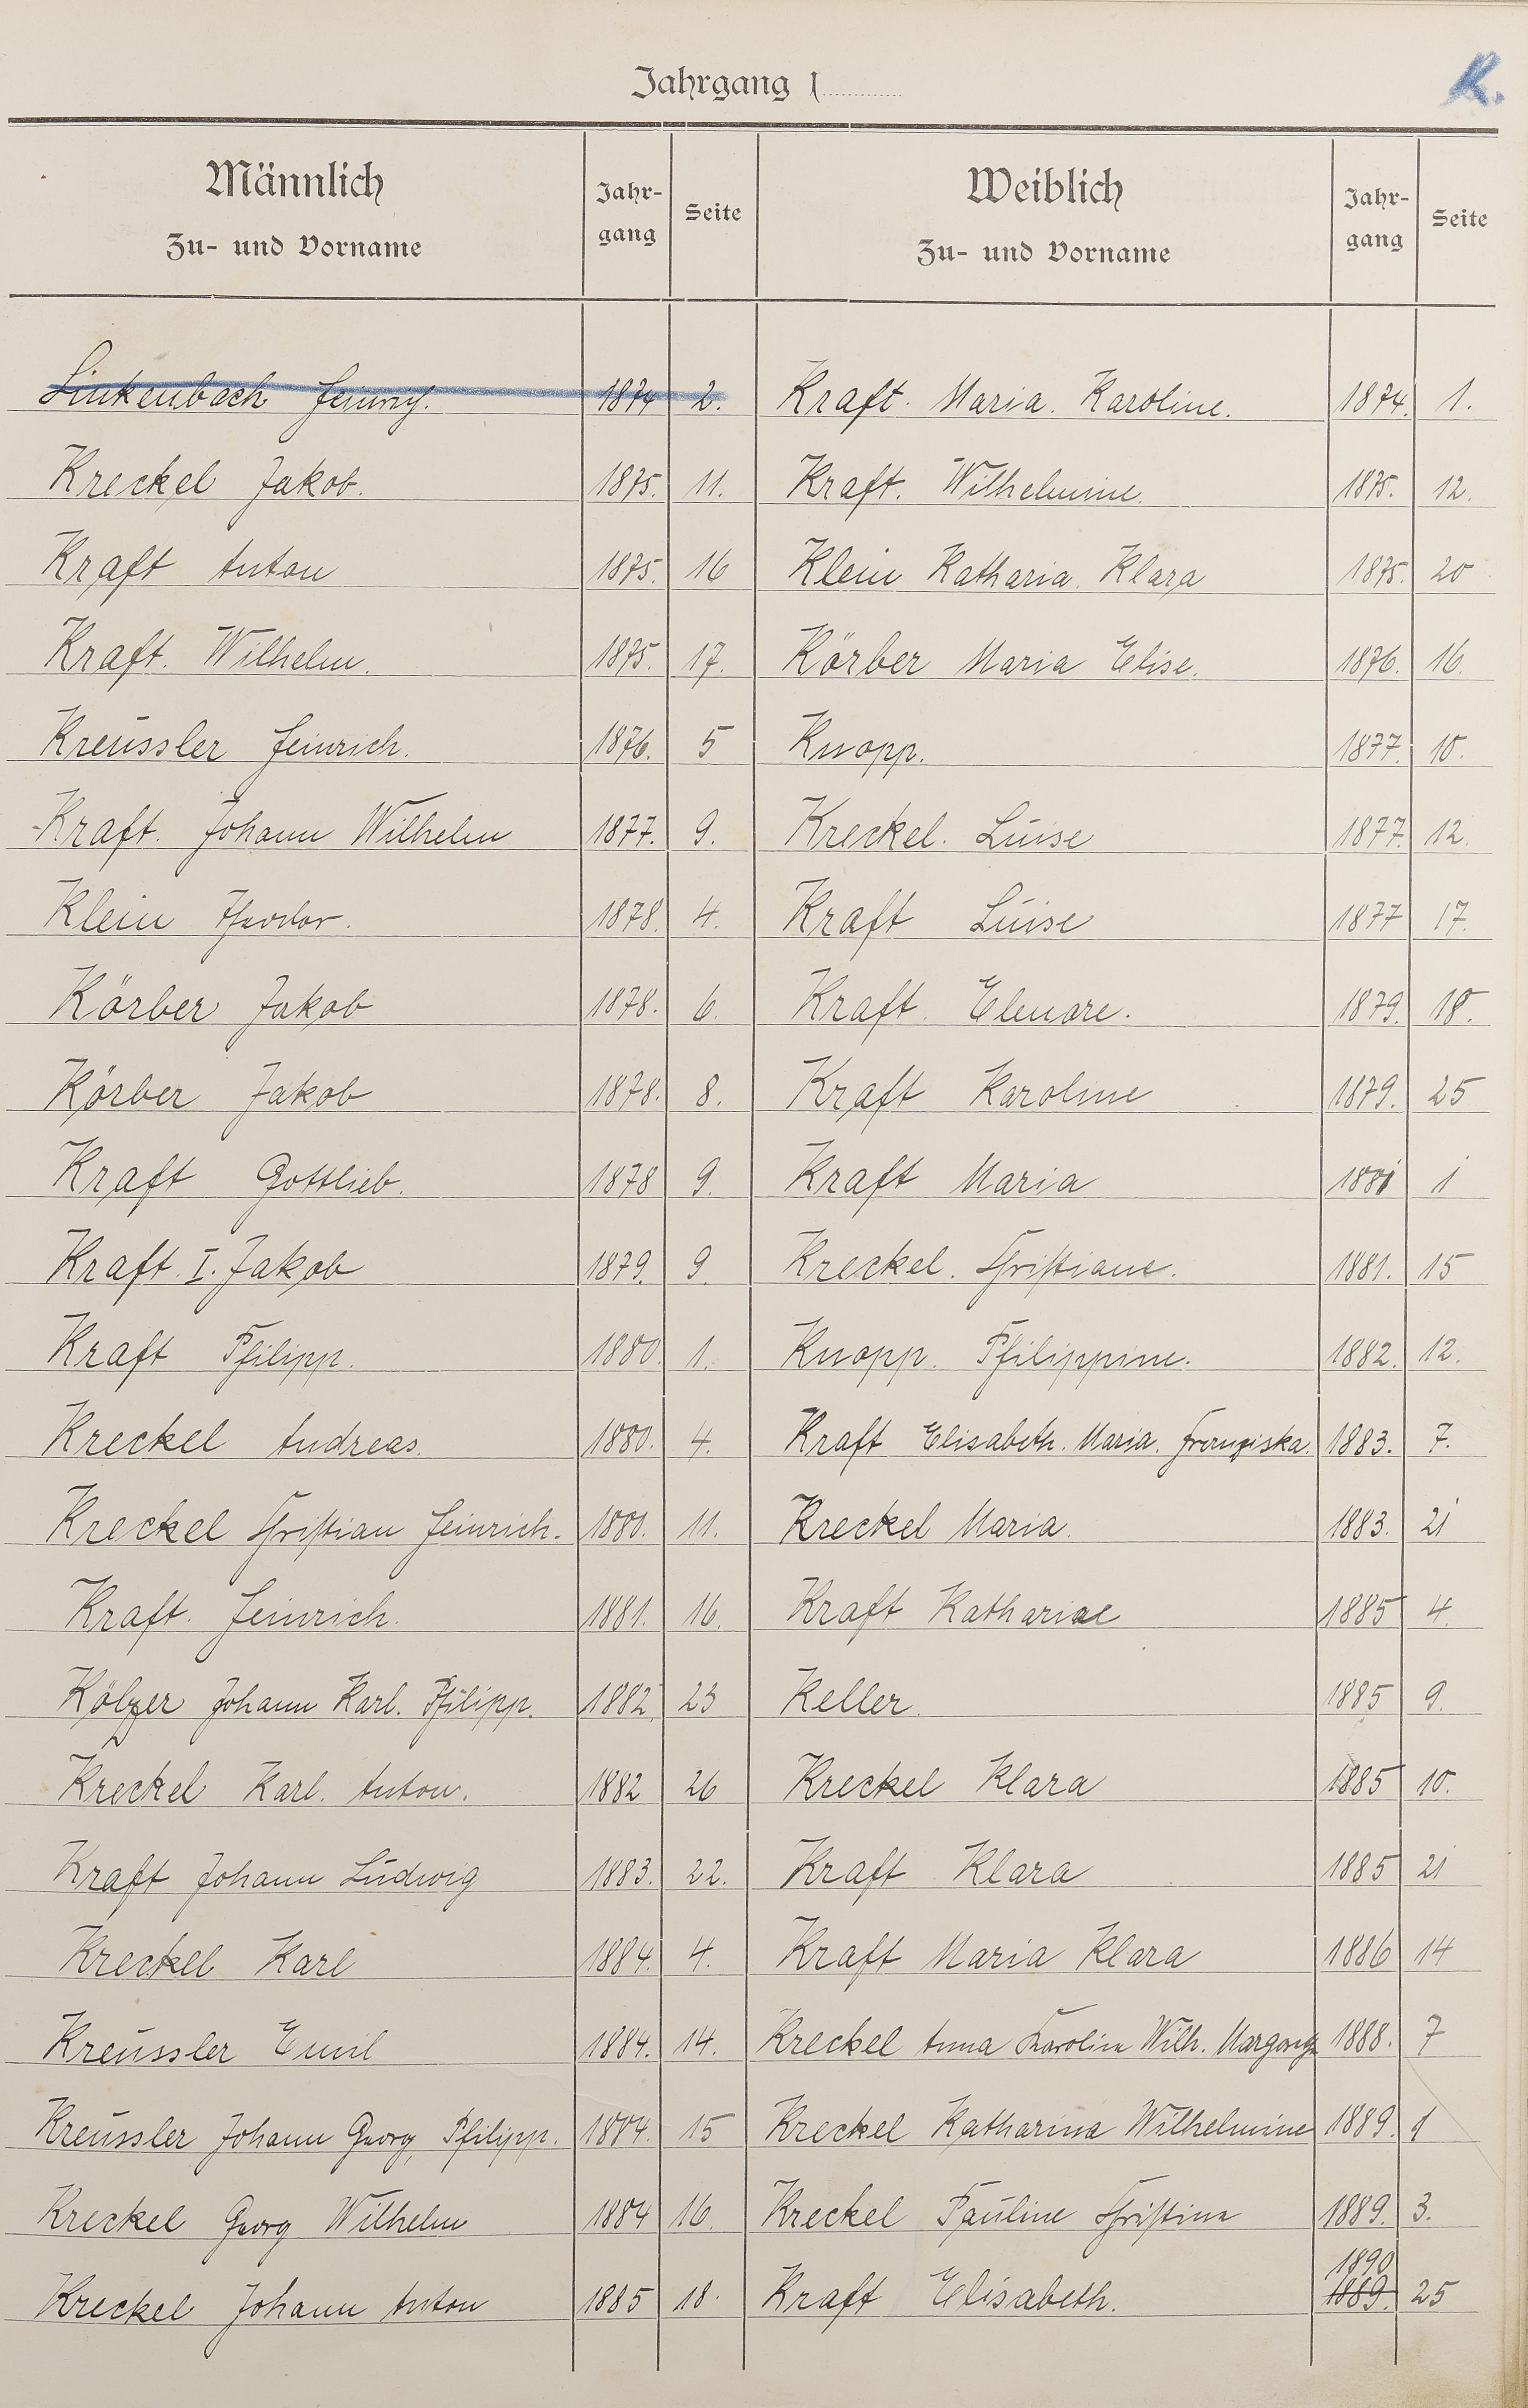 Jahrgang 1
K.
Männlich Jahr- Seite Weiblich Jahr- Seite
Zu- und Vorname gang Zu- und Vorname gang
Linkenbach Heinrich. 1874 2. Kraft. Maria. Karoline. 1874. 1.
Kreckel Jakob. 1875. 11. Kraft. Wilhelmine. 1875. 12.
Kraft Anton 1875. 16 Klein Katharia. Klara 1875. 20
Kraft. Wilhelm. 1875. 17. Körber Maria Elise. 1876. 16.
Kreussler Heinrich. 1876. 5 Knopp. 1877. 10.
Kraft. Johann Wilhelm 1877. 9. Kreckel. Luise 1877. 12.
Klein Theodor. 1878. 4. Kraft Luise 1877 17.
Körber Jakob 1878. 6. Kraft. Elenore. 1879. 18.
Körber Jakob 1878. 8. Kraft Karoline 1879. 25
Kraft Gottlieb. 1878 9. Kraft Maria 1881 1
Kraft. I. Jakob 1879. 9. Kreckel. Christiane. 1881. 15
Kraft Philipp. 1880. 1. Knopp. Philippine. 1882. 12.
Kreckel Andreas. 1880. 4. Kraft Elisabeth. Maria. Franziska. 1883. 7.
Kreckel Christian Heinrich. 1880. 11. Kreckel Maria. 1883. 21
Kraft. Heinrich. 1881. 16. Kraft Kathariae 1885 4.
Kölzer Johann Karl. Philipp. 1882 23 Keller. 1885 9.
Kreckel Karl. Anton. 1882 26 Kreckel Klara 1885 10.
Kraft Johann Ludwig 1883. 22. Kraft Klara 1885 21
Kreckel Karl 1884. 4. Kraft Maria Klara 1886 14
Kreussler Emil 1884. 14. Kreckel Anna Karolina Wilh. 1888. 7
Kreussler Johann Georg, Philipp. 1884. 15 Kreckel Katharina Wilhelmine 1889. 1
Kreckel Georg Wilhelm 1884 16. Kreckel Pauline Christina 1889. 3.
1890
Kreckel Johann Anton 1885 18. Kraft Elisabeth. 1889. 25